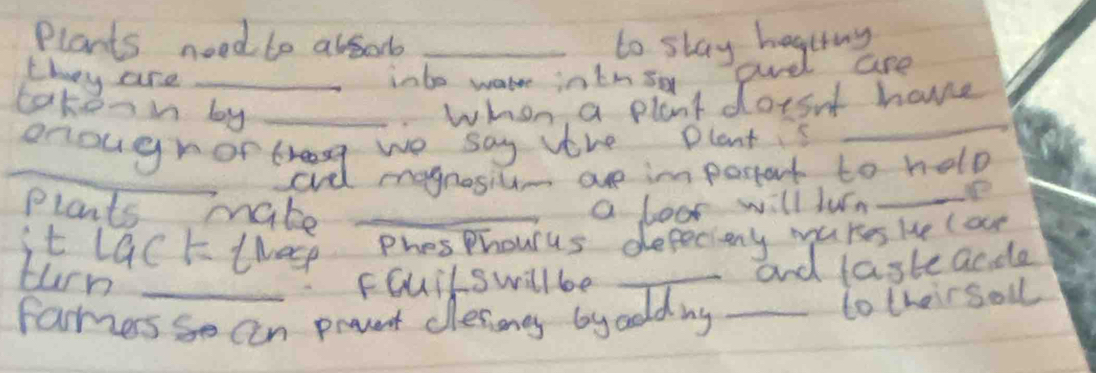 Plants need to absorb ________ to stay heagltny
they are ________ into water in th soil and are
taken n by ________. When a plant doesnt have
enough of these we say the Plant is ________
________ and magnesium are important to help
Plants make ________ a loof will turn ________ if
it lack these Phosphourus defecieny makes the leave
turn ________. Fruits will be ________ and taste acide
farmers so can prevent defieney by adding ________ to their soil